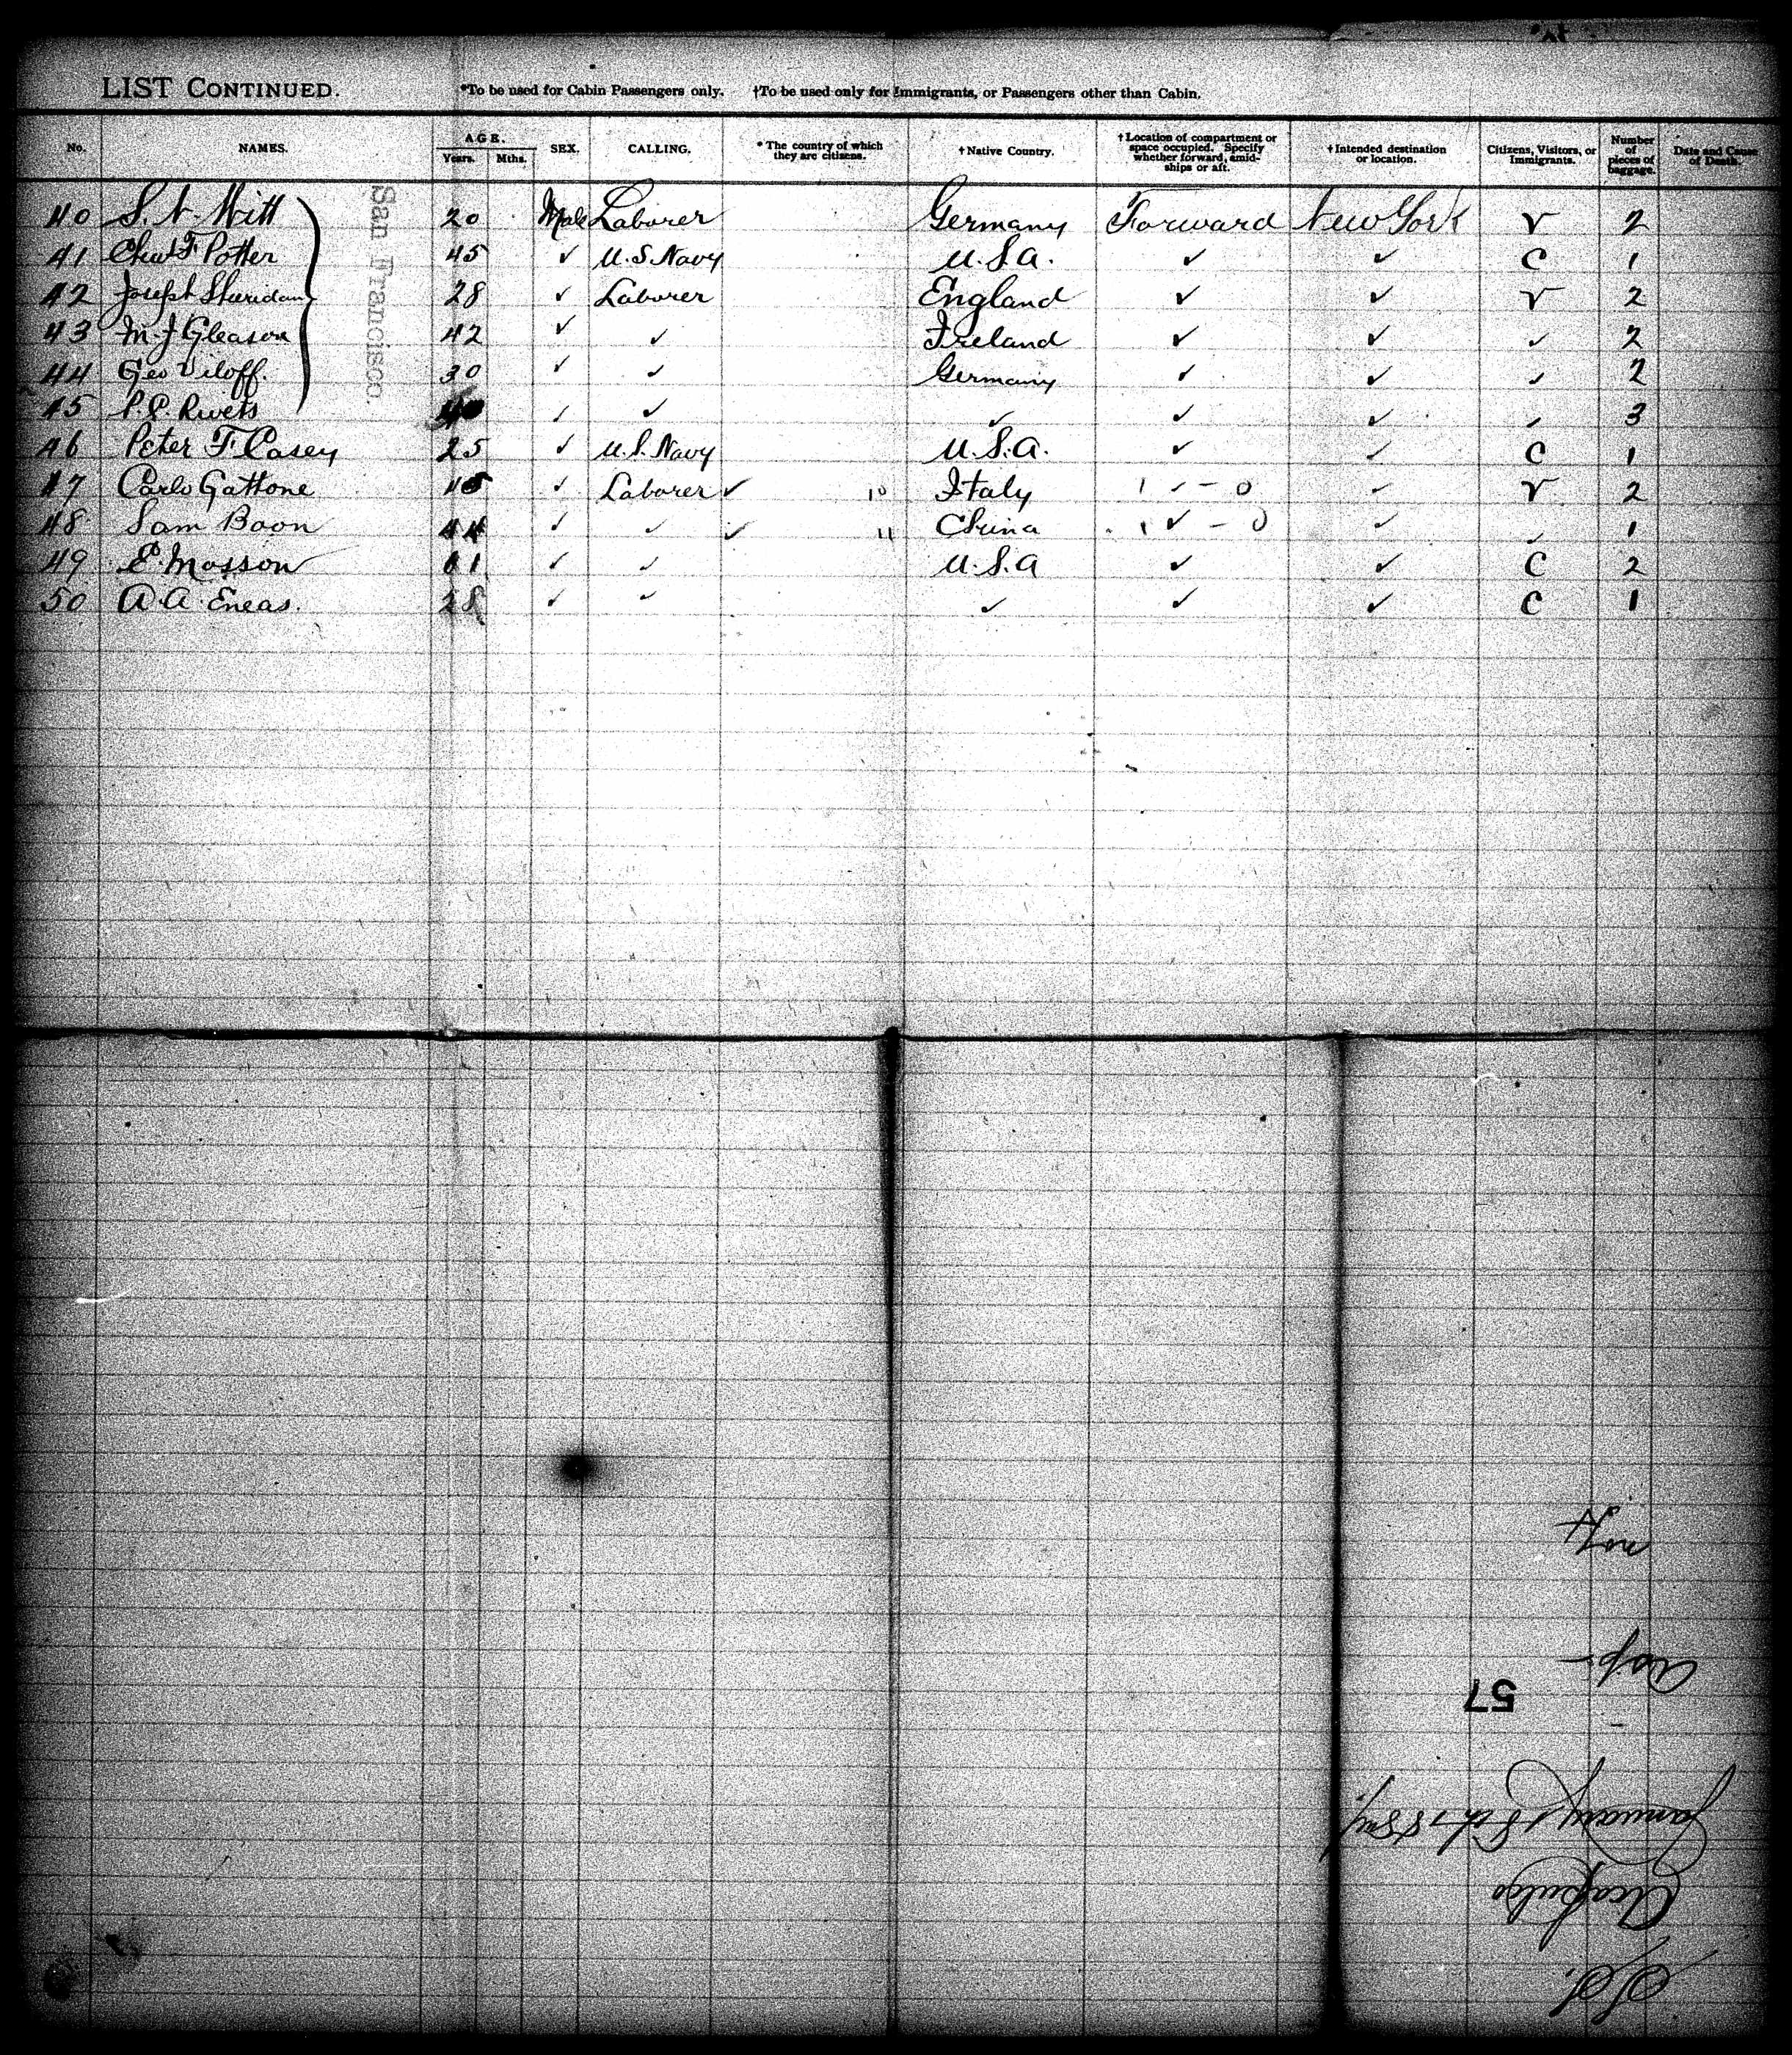 LIST CONTINUED.
*To be used for Cabin Passengers only. †To be used only for Immigrants, or Passengers other than Cabin.
No. NAMES. AGE. Years. Mths. SEX. CALLING. * The country of which they are citizens. † Native Country. † Location of compartment or space occupied. Specify whether forward, amidships or aft. † Intended destination or location. Citizens, Visitors, or Immigrants. Number of pieces of baggage. Date and Cause of Death.
San Francisco.
40 S. N. Witt 20 Male Laborer Germany Forward New York V 2
41 Chas F Potter 45 ✓ U.S. Navy U.S.A. ✓ ✓ C 1
42 Joseph Sheridan 28 ✓ Laborer England ✓ ✓ V 2
43 M. J Gleason 42 ✓ ✓ Ireland ✓ ✓ ✓ 2
44 Geo Viloff. 30 ✓ ✓ Germany ✓ ✓ ✓ 2
45 P. P. Rivets 40 ✓ ✓ ✓ ✓ ✓ ✓ 3
46 Peter F Casey 25 ✓ U.S. Navy U.S.A. ✓ ✓ C 1
47 Carlo Gattone 45 ✓ Laborer ✓ 10 Italy 1 ✓ - 0 ✓ V 2
48 Sam Boon 44 ✓ ✓ ✓ 11 China 1 ✓ - 0 ✓ ✓ 1
49 E. Masson 61 ✓ ✓ U.S.A ✓ ✓ C 2
50 A. A. Eneas. 28 ✓ ✓ ✓ ✓ ✓ C 1
S.S.
Acapulco
January 18th 1889.
57
Asp